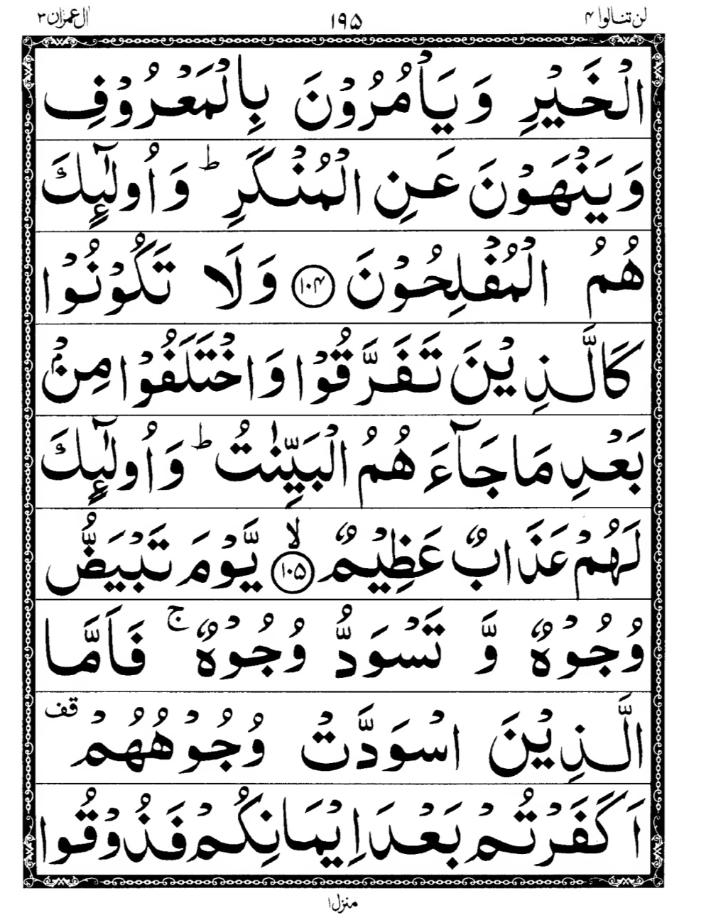 لن تنالوا ۴ ۱۹۵ ال عمران ۳
الْخَيْرِ وَيَاْمُرُوْنَ بِالْمَعْرُوْفِ
وَيَنْهَوْنَ عَنِ الْمُنْكَرِ ؕ وَاُولٰٓئِكَ
هُمُ الْمُفْلِحُوْنَ ۝۱۰۴ وَلَا تَكُوْنُوْا
كَالَّذِيْنَ تَفَرَّقُوْا وَاخْتَلَفُوْا مِنْۢ
بَعْدِ مَا جَآءَ هُمُ الْبَيِّنٰتُ ؕ وَاُولٰٓئِكَ
لَهُمْ عَذَابٌ عَظِيْمٌ ۝۱۰۵ ۙ يَّوْمَ تَبْيَضُّ
وُجُوْهٌ وَّ تَسْوَدُّ وُجُوْهٌ ۚ فَاَمَّا
الَّذِيْنَ اسْوَدَّتْ وُجُوْهُهُمْ قف
اَكَفَرْتُمْ بَعْدَ اِيْمَانِكُمْ فَذُوْقُوا
منزل۱